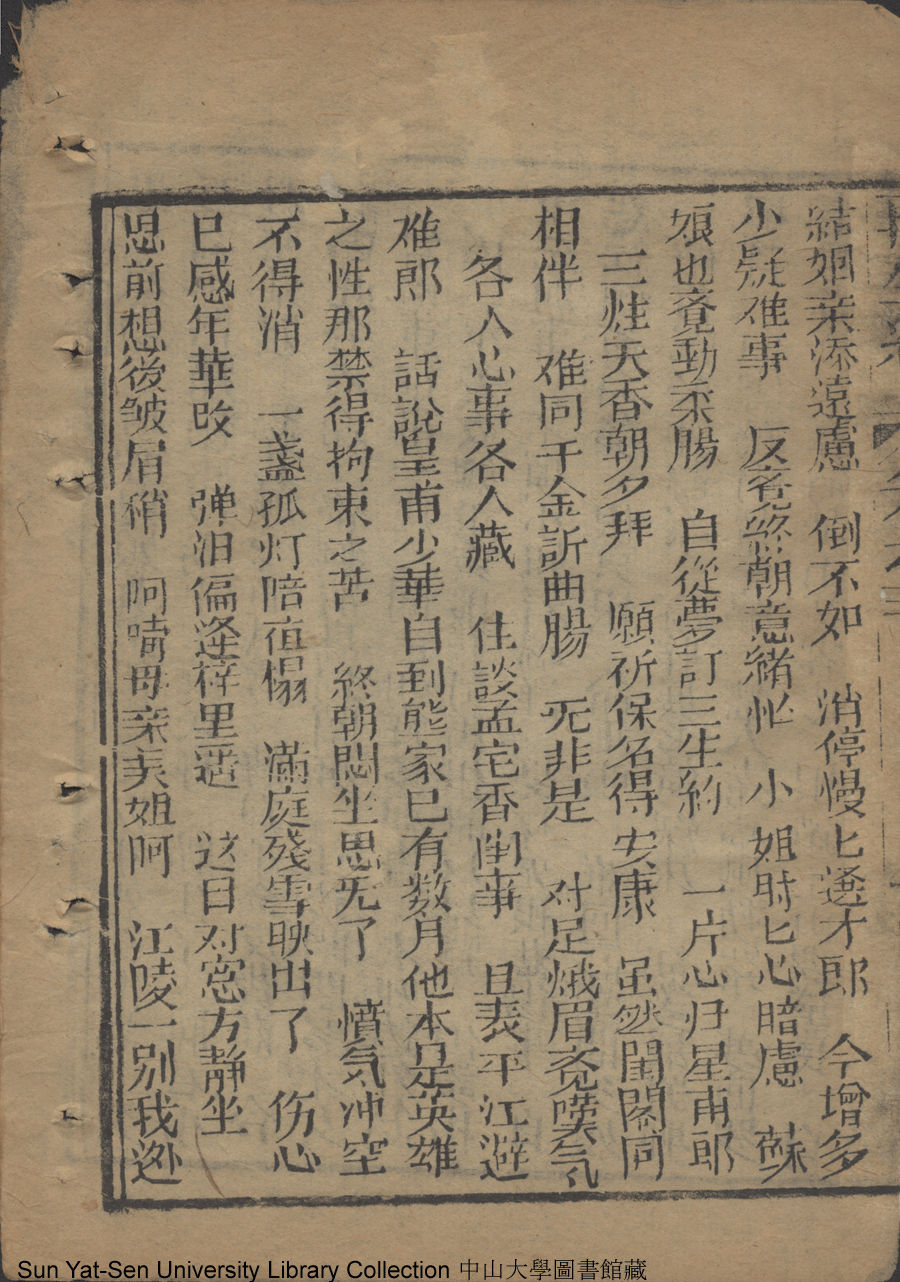 結姻亲添遠慮　倒不如　消停慢匕送才郎　今增多
少疑难事　反竟終朝意緒忙　小姐时匕心暗慮　蘇
娘也竟動柔腸　自從夢訂三生約　一片心归皇甫郎
三炷天香朝夕拜　願祈保名得安康　虽然閨閣同
相伴　难同千金訴曲腸　旡非是　对足娥眉竟嘆气
各人心事各人藏　住談孟宅香闺事　且表平江避
难郎　話說皇甫少華自到熊家已有数月他本是英雄
之性那禁得拘束之苦　終朝悶坐思旡了　憤気冲空
不得消　一盞孤灯陪宿榻　滿庭殘雪映出了　伤心
已感年華改　弹泪偏逢梓里遥　这日对窓方静坐
思前想後皱眉稍　呵唷母亲夫姐呵　江陵一别我逊
Sun Yat-Sen University Library Collection 中山大學圖書館藏